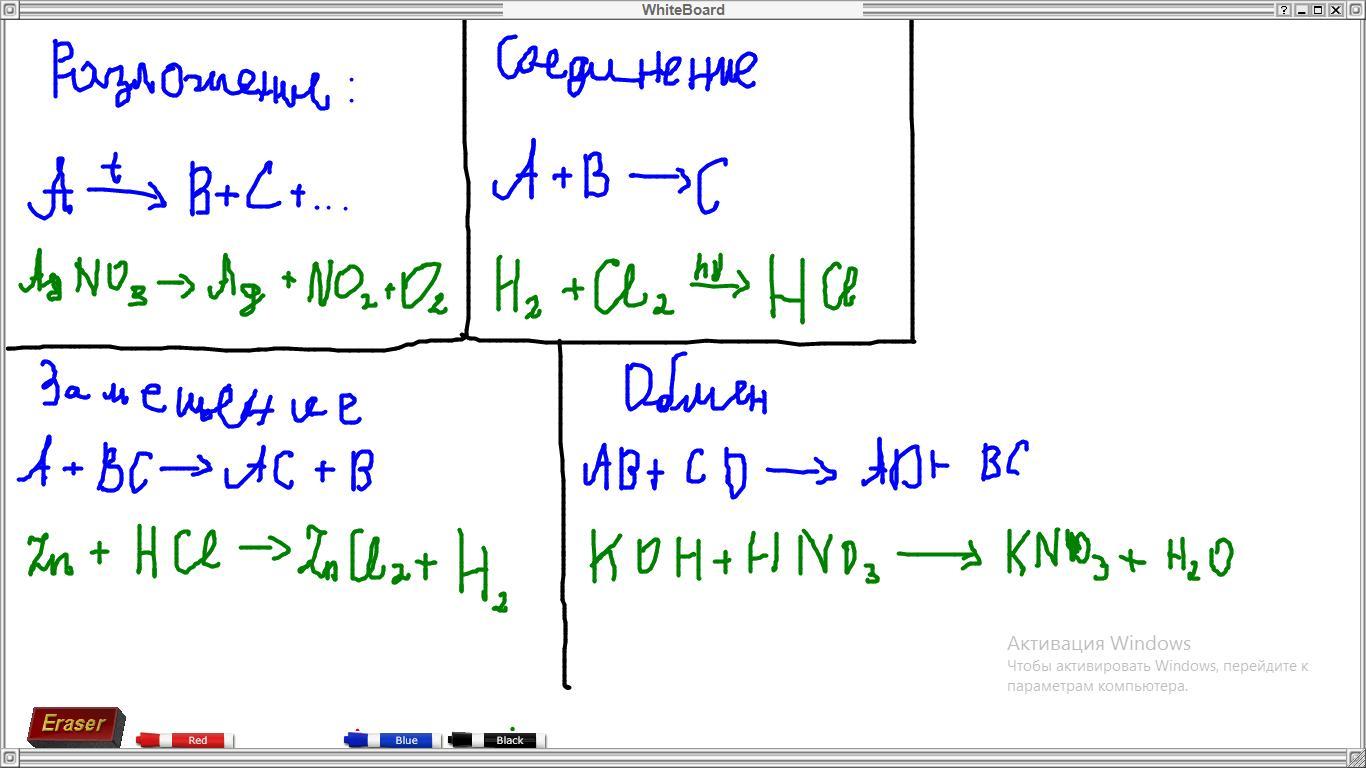 WhiteBoard
Разложение:
A t→ B+C+...
AgNO3 → Ag + NO2 + O2
Соединение
A + B → C
H2 + Cl2 hν→ HCl
Замещение
A + BC → AC + B
Zn + HCl → ZnCl2 + H2
Обмен
AB + CD → AD + BC
KOH + HNO3 → KNO3 + H2O
Активация Windows
Чтобы активировать Windows, перейдите к
параметрам компьютера.
Eraser
Red
Blue
Black